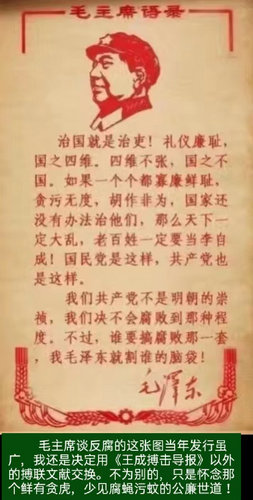 毛主席语录
治国就是治吏！礼仪廉耻，
国之四维。四维不张，国之不
国。如果一个个都寡廉鲜耻，
贪污无度，胡作非为，国家还
没有办法治他们，那么天下一
定大乱，老百姓一定要当李自
成！国民党是这样，共产党也
是这样。
我们共产党不是明朝的崇
祯，我们决不会腐败到那种程
度。不过，谁要搞腐败那一套
，我毛泽东就割谁的脑袋！
毛泽东
毛主席谈反腐的这张图当年发行虽
广，我还是决定用《王成搏击导报》以外
的搏联文献交换。不为别的，只是怀念那
个鲜有贪虎，少见腐蝇污蚊的公廉世道！